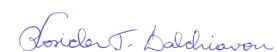 Losider T. Dalchiavon